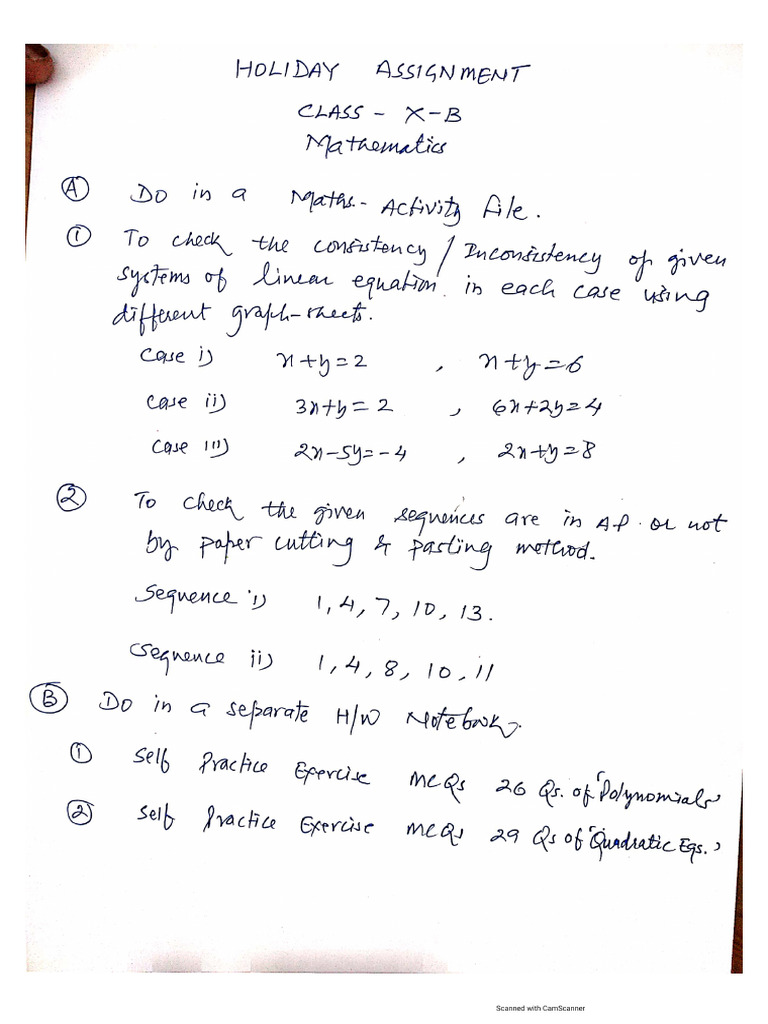 HOLIDAY ASSIGNMENT
CLASS - X-B
Mathematics
Ⓐ Do in a Maths- Activity file.
① To check the consistency / Inconsistency of given
systems of linear equation in each case using
different graph-sheets.
Case i) x+y=2 , x+y=6
Case ii) 3x+y=2 , 6x+2y=4
Case iii) 2x-5y=-4 , 2x+y=8
② To check the given sequences are in AP or not
by paper cutting & pasting method.
Sequence i) 1, 4, 7, 10, 13.
Sequence ii) 1, 4, 8, 10, 11
Ⓑ Do in a separate H/W Notebook.
① Self Practice Exercise MCQs 26 Qs. of 'Polynomials'
② Self Practice Exercise MCQs 29 Qs of 'Quadratic Eqs.'
Scanned with CamScanner